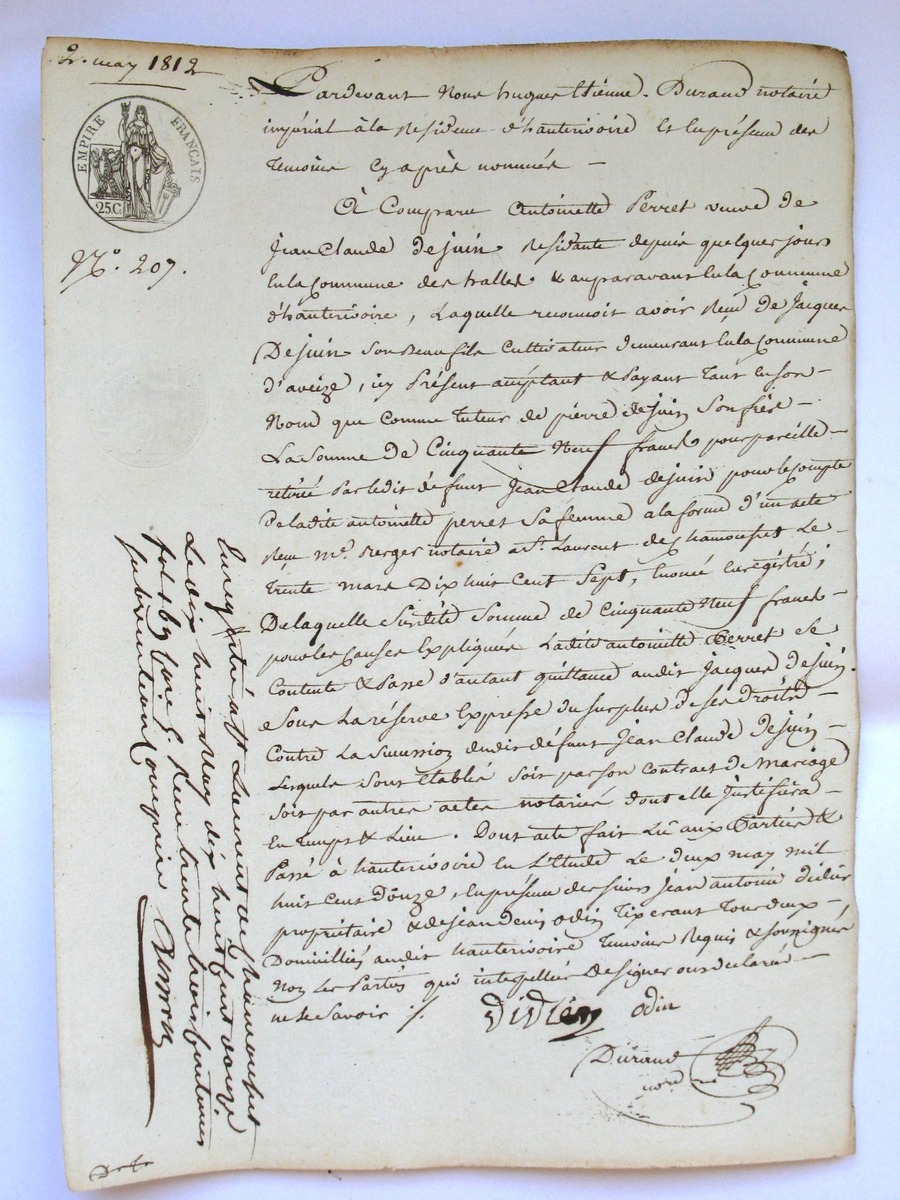 2. may 1812
EMPIRE FRANÇAIS
25C
N.º 207.
Pardevant Nous hugues Etienne Durand notaire
impérial à la Residence d'hauterivoire Et en présence des
temoins Cy après nommés —
A Comparu Antoinette Perret veuve de
Jean Claude Dejuin Residante depuis quelques jours
En la Commune des halles & auparavant En la Commune
d'hauterivoire, Laquelle reconnoit avoir Reçu de Jacques
Dejuin Son Beau fils Cultivateur demeurant En la Commune
d'aveize, icy Présent acceptant & Payant tant En son —
Nom que comme tuteur de pierre Dejuin Son frère —
La Somme de Cinquante Neuf francs pour pareille —
retirée Par ledit défunt Jean Claude dejuin pour le Compte
De ladite antoinette perret Sa femme a la forme d'un acte
Reçu Me. Berger notaire a St. Laurent de Chamousset Le —
trente mars Dix huit Cent Sept, Enoncé Enregistré;
De laquelle Susdite Somme de Cinquante Neuf francs —
pour les Causes Expliquées Ladite antoinette Perret se
Contente & Passe d'autant quittance audit Jacques Dejuin
Sous La réserve Expresse du surplus de ses droits —
Contre La Succession dudit défunt Jean Claude Dejuin —
Lesquels Sont Etablis Soit par son Contrat de Mariage
Soit par autres actes notariés dont elle Justifiera —
En temps & Lieu. Dont acte fait Lû aux Parties &
Passé à hauterivoire En L'Etude Le deux may mil
huit Cent Douze, En présence des sieurs Jean antoine didier
propriétaire & de Jean Denis Odin tixerant tous deux —
Domiciliés audit hauterivoire temoins Requis & soussignés
Non Les Parties qui interpellées de signer ont declaré —
ne le Savoir ./.
Didier odin
Durand
nore
Enregistré à St Laurent de Chamousset
Le dix huit may dix huit Cent douze
fol. 67 Reçu trente trois centimes
subvention comprise